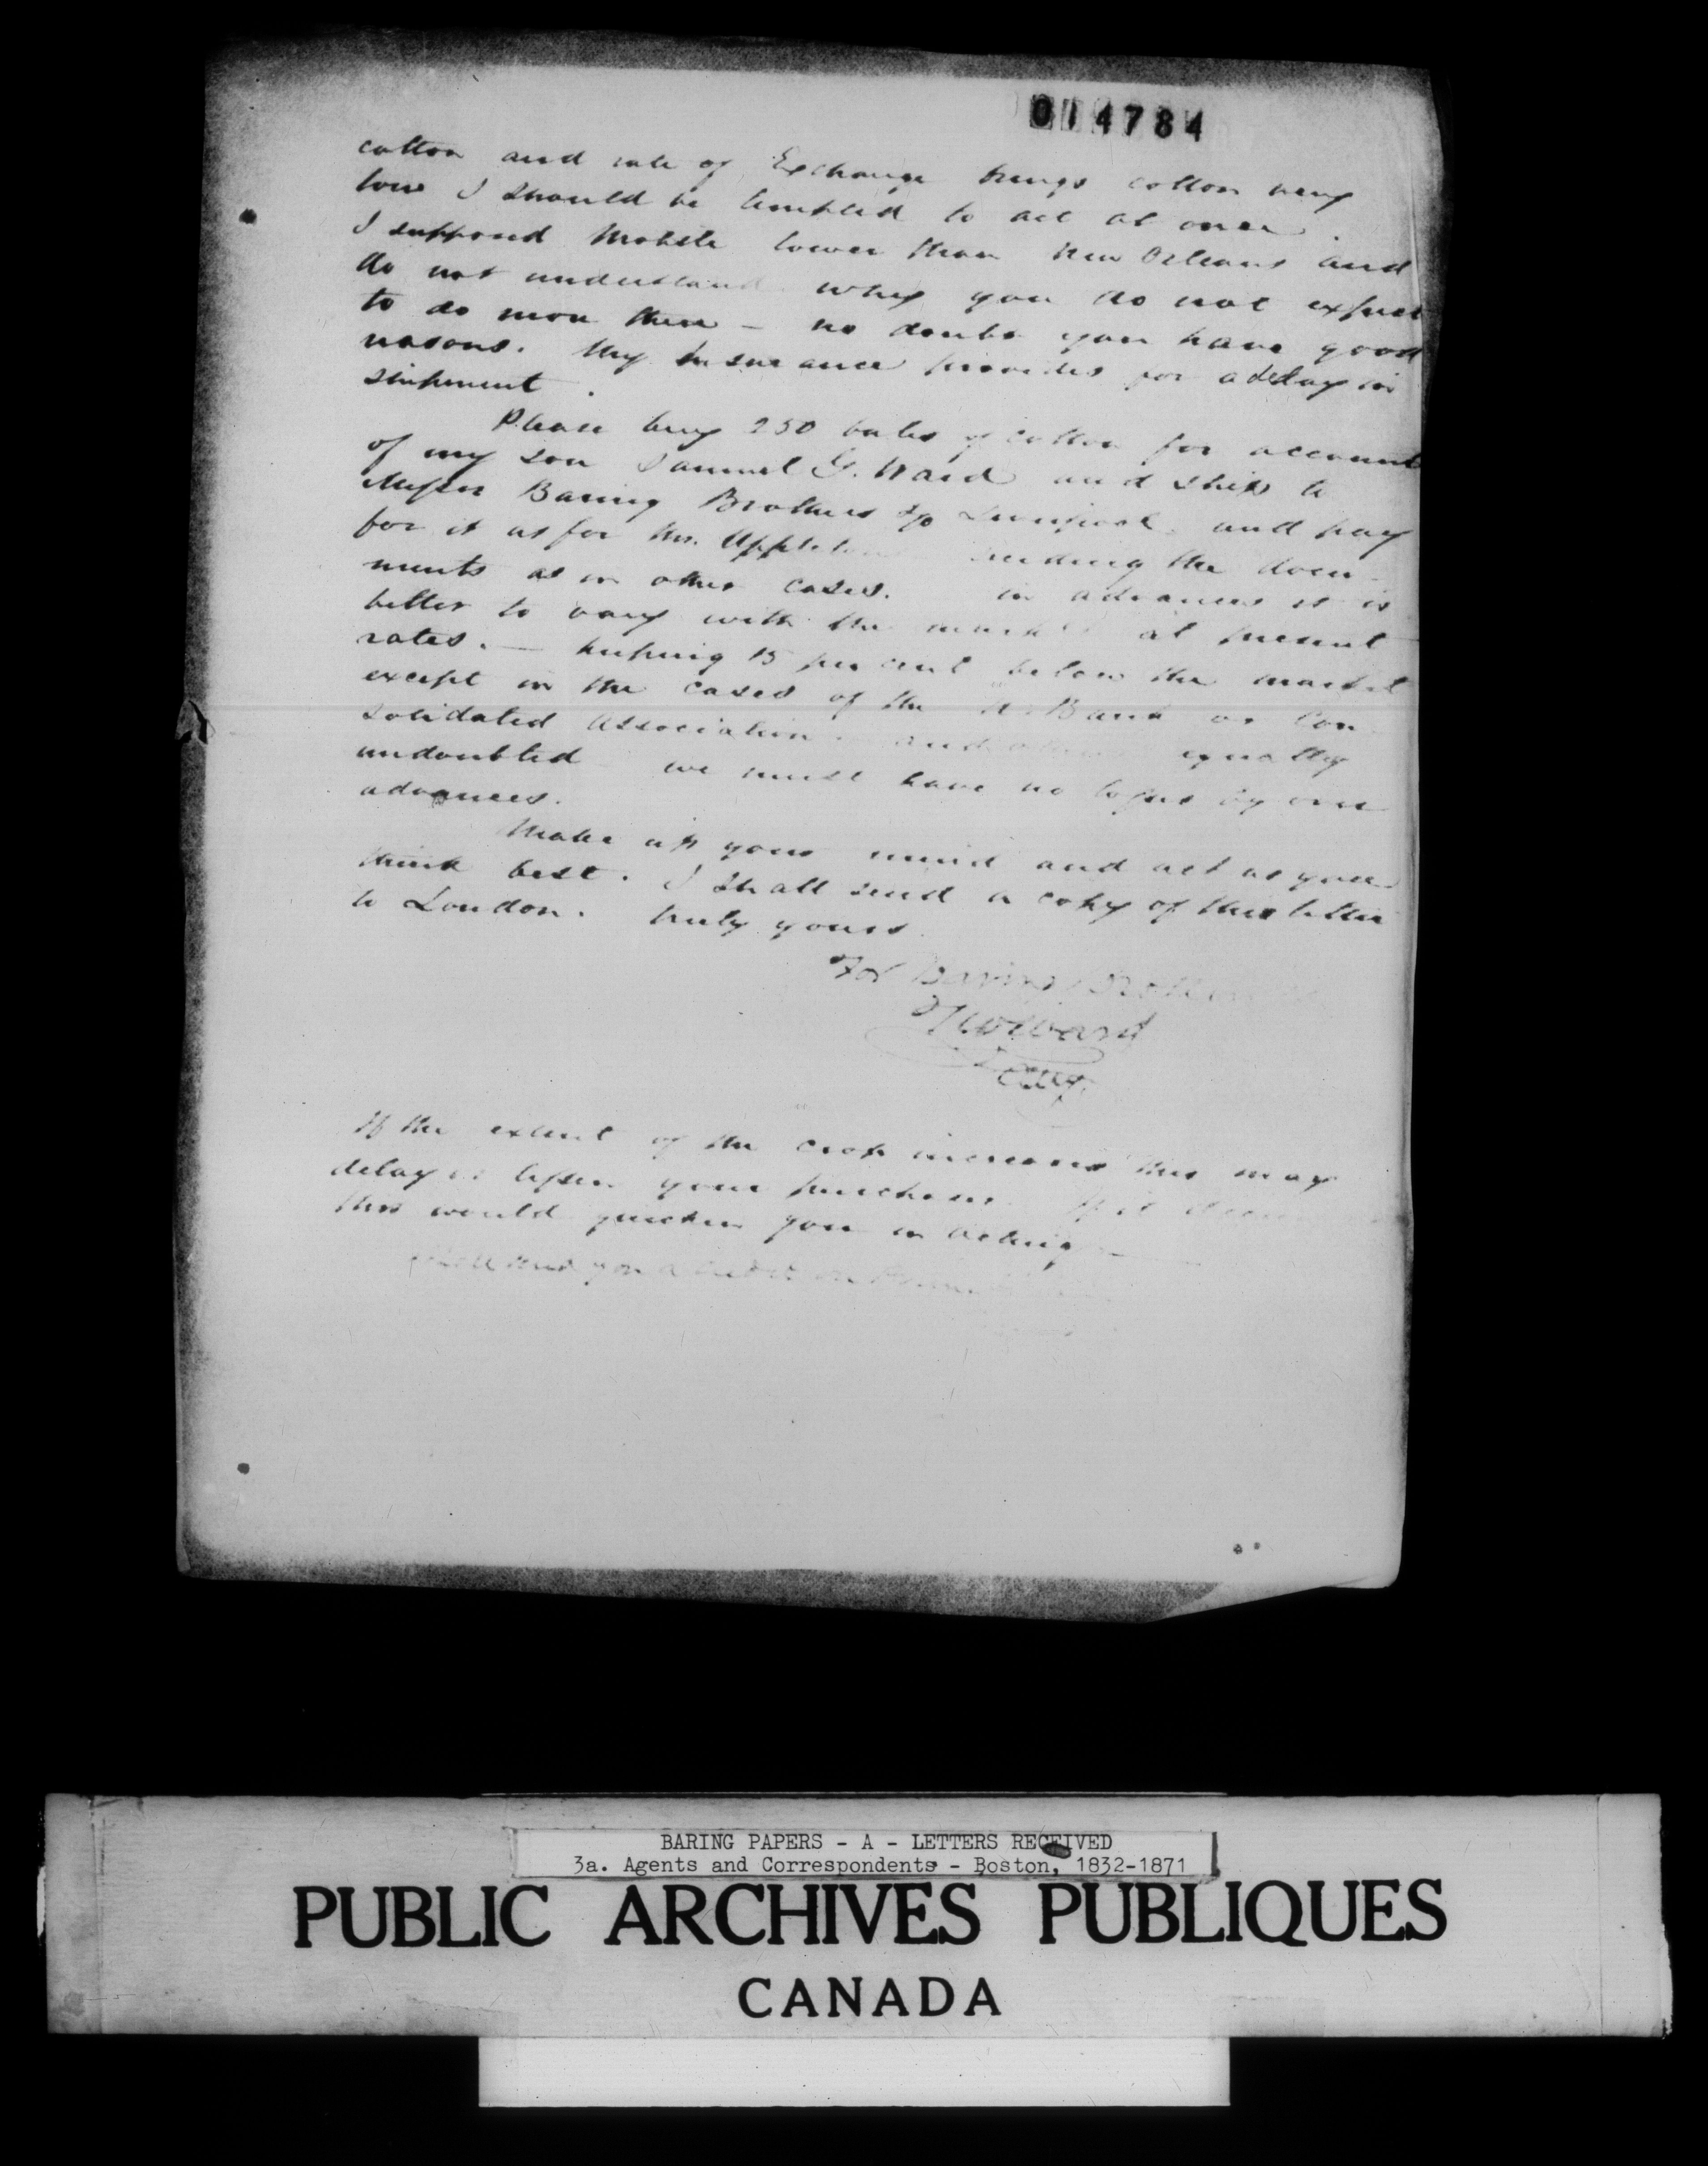 014784
cotton and rate of Exchange brings cotton very
low I should be tempted to act at once.
I supposed Mobile lower than New Orleans and
do not understand why you do not expect
to do more there - no doubt you have good
reasons. My Insurance provides for a delay in
shipment.
Please buy 250 bales of cotton for account
of my son Samuel G. Ward and ship to
Messrs Baring Brothers & Co Liverpool and pay
for it as for Mr. Appleton sending the docu-
ments as in other cases. in advances it is
better to vary with the market at present
rates. - keeping 15 per cent below the market
except in the cases of the Bank or Con
solidated Association equally
undoubted we must have no losses by over
advances.
Make up your mind and act as you
think best. I shall send a copy of this letter
to London. truly yours
For Baring Brothers
T W Ward
If the extent of the crop increases this may
delay or lessen your purchases. If it
this would quicken you in acting -
you a
BARING PAPERS - A - LETTERS RECEIVED
3a. Agents and Correspondents - Boston, 1832-1871
PUBLIC ARCHIVES PUBLIQUES
CANADA